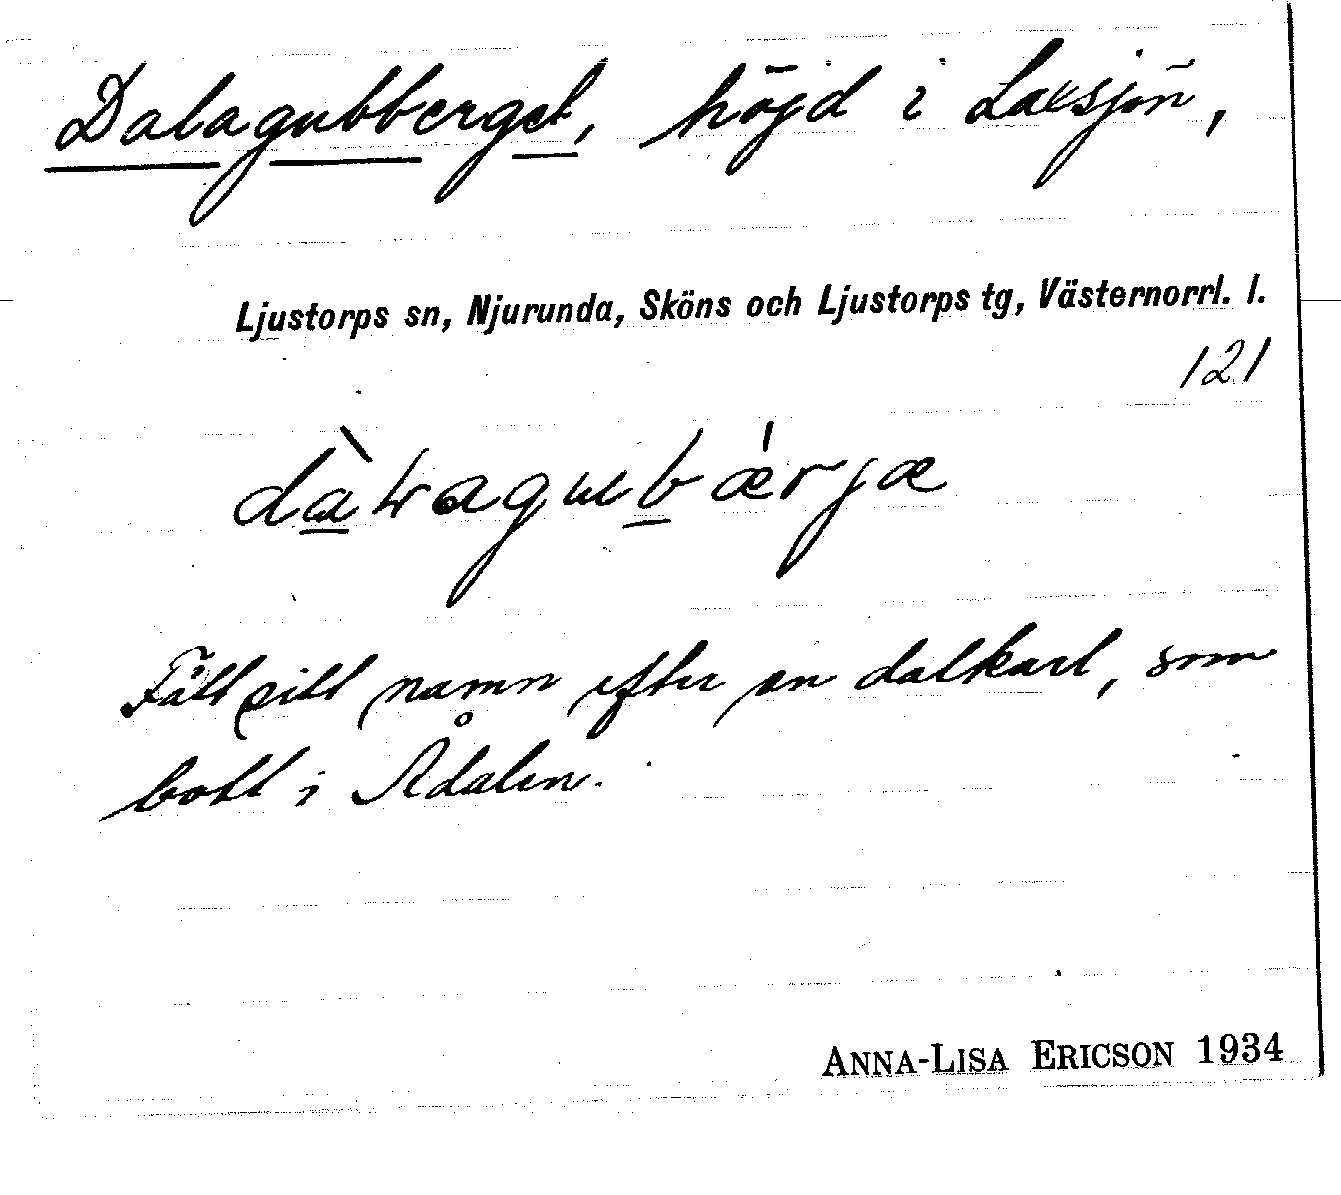 Dalagubberget, höjd i Laxsjön,
Ljustorps sn, Njurunda, Sköns och Ljustorps tg, Västernorrl. l.
121
Fått sitt namn efter en dalkarl, som
bott i Ådalen.
ANNA-LISA ERICSON 1934